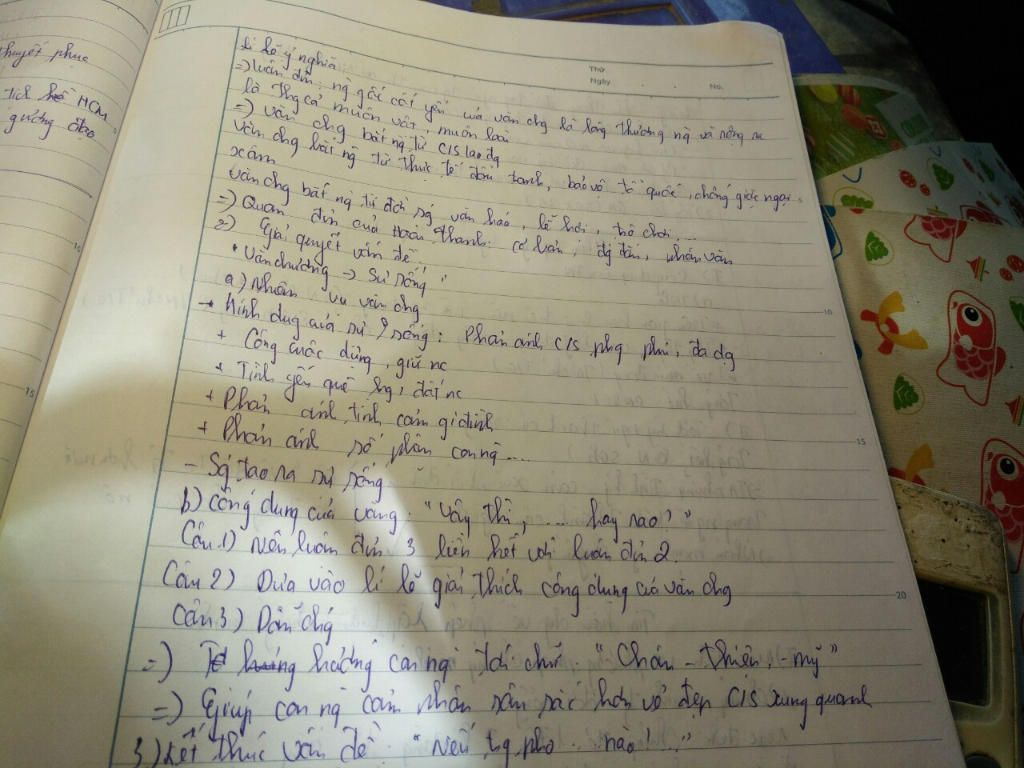 thuyết phục
tích hợp HCM
gương đạo
Thứ
Ngày
No.
lí lẽ ý nghĩa
=) luận đ'm: ng gốc cốt yếu của văn chg là lòng thương ng và rộng ra
là thg cả muôn vật, muôn loài
=) văn chg bắt ng từ C/S lao đg
văn chg bắt ng từ thực tế đấu tranh, bảo vệ tổ quốc, chống giặc ngoại
xâm
văn chg bắt ng từ đời sg văn hoá, lễ hội, trò chơi
=) Quan đ'm của Hoài Thanh: cơ bản, đg đắn, nhân văn
2) Giải quyết vấn đề
* Văn chương → Sự sống"
a) Nhiệm vụ văn chg
- Hình dug của sự sống: Phản ánh C/S phg phú, đa dg
+ Công cuộc dựng, giữ nc
+ Tình yêu quê hg, đất nc
+ Phản ánh tình cảm gi đình
+ Phản ánh số phận con ng ....
- Sg tạo ra sự sống
b) Công dụng của văng: "Vậy thì, .... hay sao?"
Câu 1) Nêu luận đ'm 3 liên kết với luận đ'm 2.
Câu 2) Đưa vào lí lẽ giải thích công dụng của văn chg
Câu 3) Dẫn chg
=) hướng con ng tới chữ: "Chân - thiện - mỹ"
=) Giúp con ng cảm nhận sâu sắc hơn vẻ đẹp C/S xung quanh
3) Kết thúc vấn đề: "Nếu tg pho ... nào!..."
10
15
20
10
15